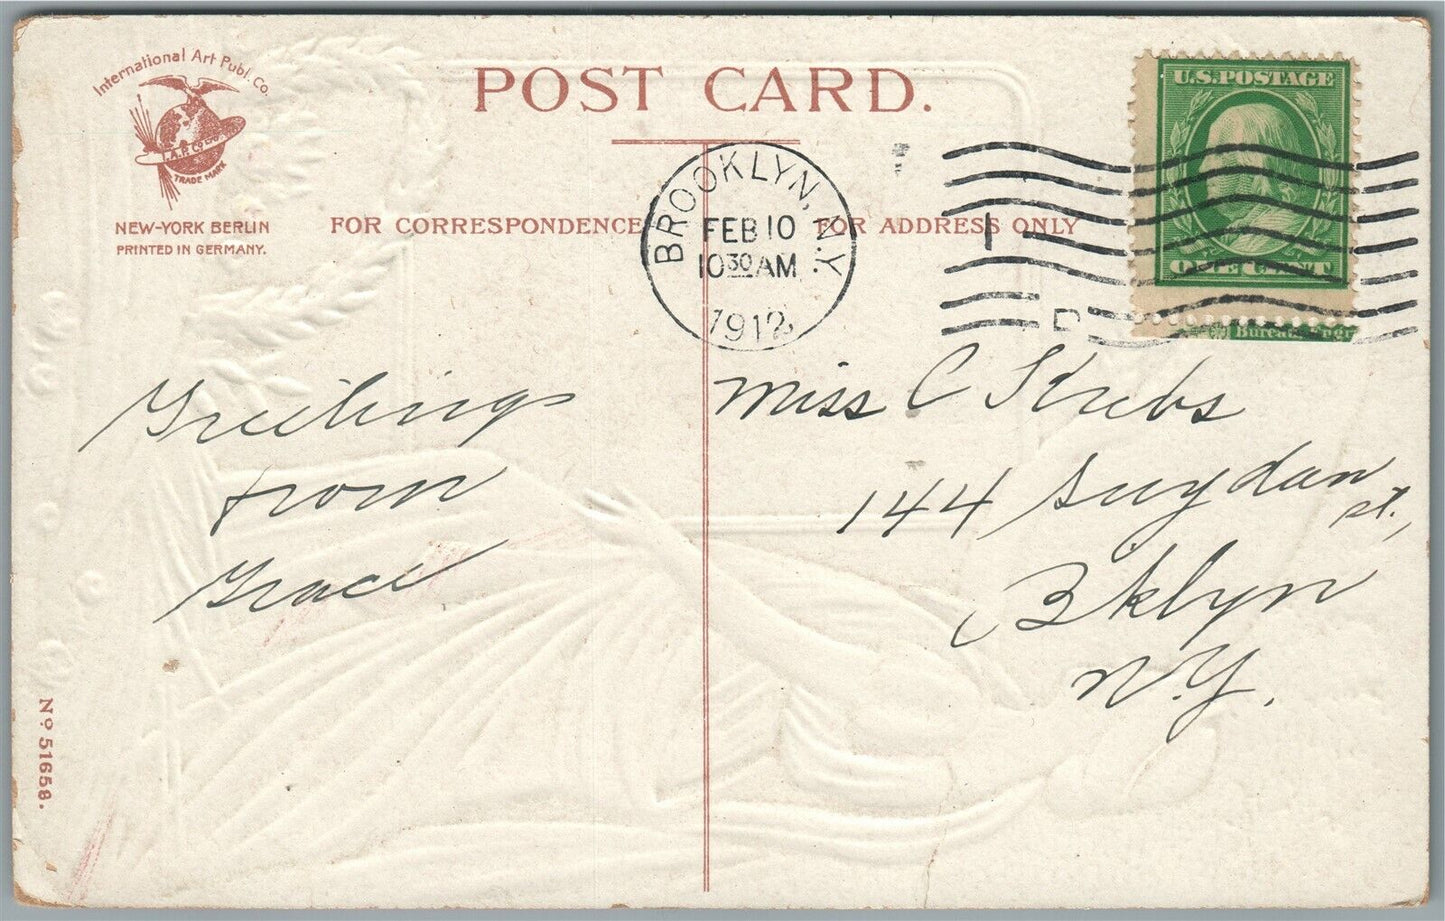 International Art Publ. Co.
I.A.P. Co.
TRADE MARK
NEW-YORK BERLIN
PRINTED IN GERMANY.
POST CARD.
FOR CORRESPONDENCE
FOR ADDRESS ONLY
BROOKLYN, N.Y.
FEB 10
10 30 AM
1912
1
D
U.S. POSTAGE
ONE CENT
Greetings
from
Grace
Miss C Krebs
144 Suydam
st.,
Bklyn
N.Y.
No. 51658.